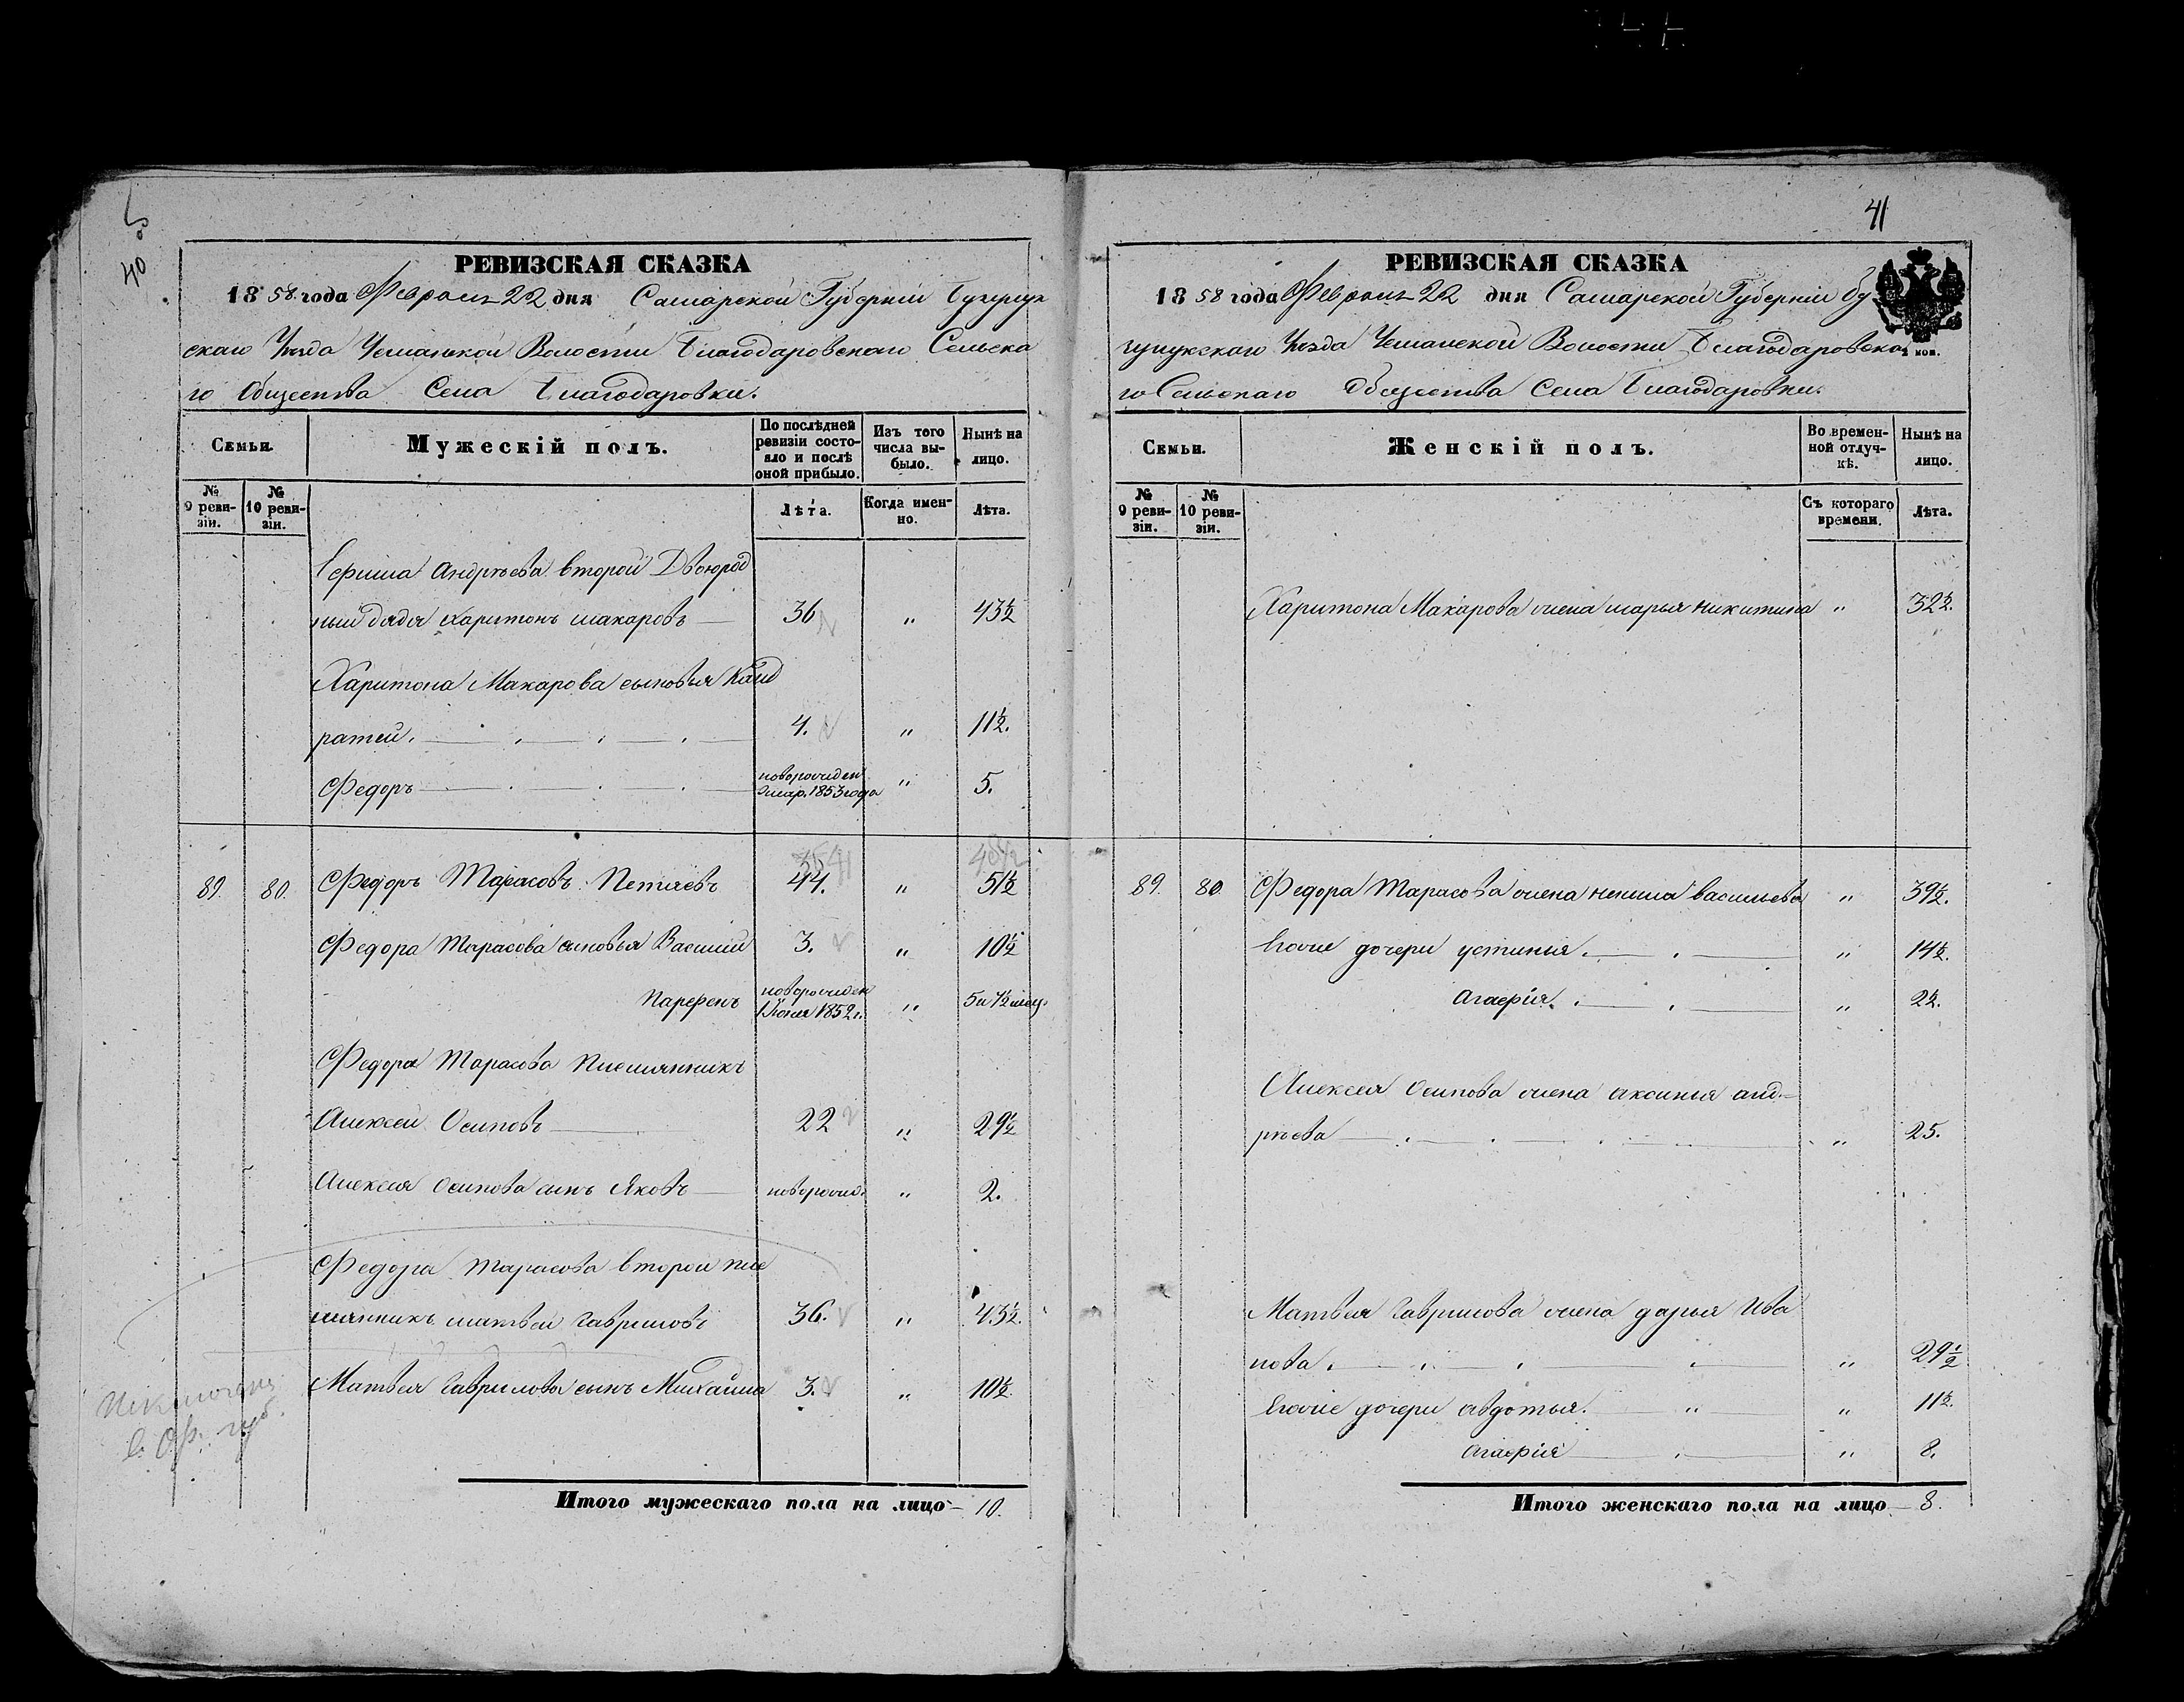 40
РЕВИЗСКАЯ СКАЗКА
1858 года Февраля 22 дня Самарской Губерніи Бугурук
скаго Уѣзда Волости Благодаровскаго Сельска
го Общества Села Благодаровки.
Семьи. Мужескій полъ. По послѣдней ревизіи состояло и послѣ оной прибыло. Изъ того числа выбыло. Нынѣ на лицо.
№ 9 ревизіи. № 10 ревизіи. Лѣта. Когда именно. Лѣта.
Ефима Андрѣева второй Двоюрод
ный дядя Харитонъ макаровъ 36 " 43½
Харитона Макарова сыновья Канд
ратей. 4. " 11½.
Федоръ новорожден 1853 года " 5.
89. 80. Федоръ Тарасовъ Петяевъ 44. " 51½
Федора Тарасова сыновья Василий 3. " 10½
Парфенъ новорожден 1852 г. " 5 и 7½ мец.
Федора Тарасова Племянникъ
Алексей Осиповъ 22 " 29½
Алексея Осипова сынъ Яковъ новорожд. " 2.
Федора Тарасова второй пле
мянникъ матвей Гавриловъ 36. " 43½.
Матвея Гаврилова сынъ Михайла 3. " 10½.
Итого мужескаго пола на лицо 10.
41
РЕВИЗСКАЯ СКАЗКА
1858 года Февраля 22 дня Самарской Губерніи Бу
гурукскаго Уѣзда Волости Благодаровска
го Сельскаго Общества Села Благодаровки.
Семьи. Женскій полъ. Во временной отлучкѣ. Нынѣ на лицо.
№ 9 ревизіи. № 10 ревизіи. Съ котораго времени. Лѣта.
Харитона Макарова жена марья никитина " 32½.
89. 80. Федора Тарасова жена ненила васильева " 39½.
Егоже дочери устинья. " 14½.
Агафія. " 2½.
Алексея Осипова жена аксинья анд
рѣева " 25.
Матвея Гаврилова жена дарья Ива
нова. " 29½
Егоже дочери авдотья. " " 11½.
Агафія " 8.
Итого женскаго пола на лицо 8.